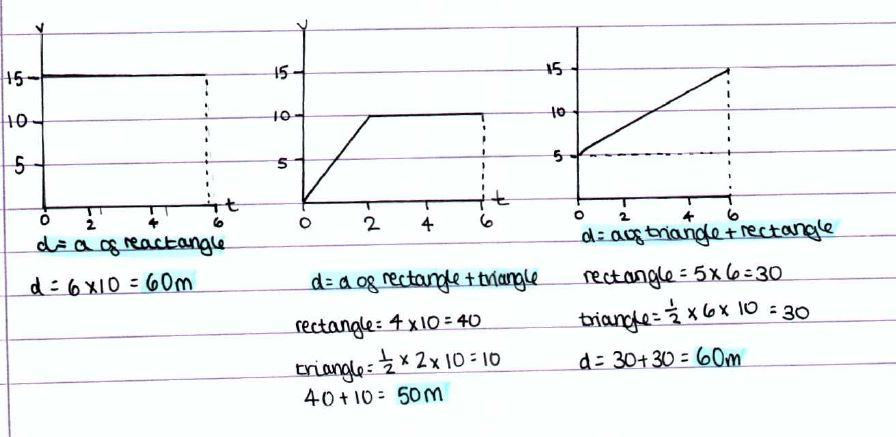 v
15
10
5
0 2 4 6 t
d= a of reactangle
d = 6 x 10 = 60m
v
15
10
5
0 2 4 6 t
d= a of rectangle + triangle
rectangle = 4 x 10 = 40
triangle = 1/2 x 2 x 10 = 10
40 + 10 = 50m
15
10
5
0 2 4 6
d= a of triangle + rectangle
rectangle = 5 x 6 = 30
triangle = 1/2 x 6 x 10 = 30
d = 30 + 30 = 60m